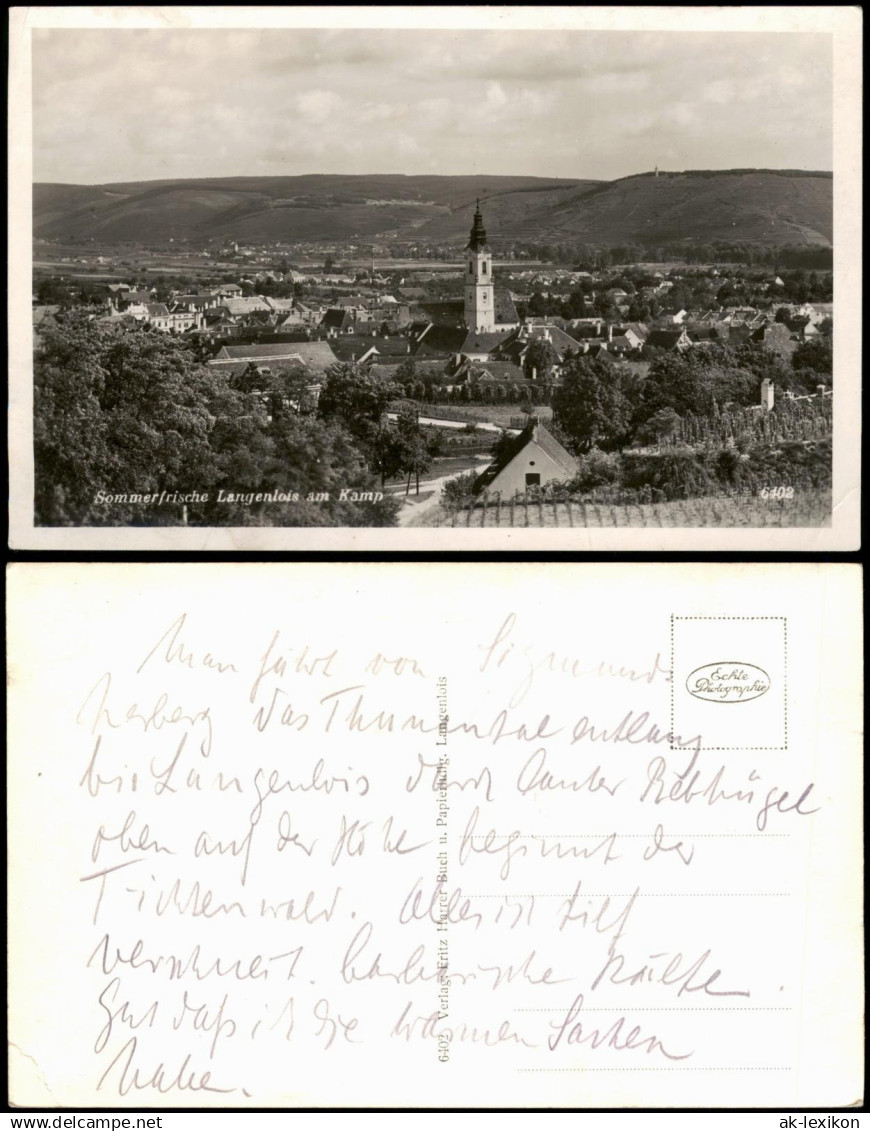 Sommerfrische Langenlois am Kamp
6402
Man fährt von Sigmunds
herberg das Thumental entlang
bis Langenlois durch lauter Rebhügel
oben auf der Höhe beginnt der
Fichtenwald. Alles ist tief
verschneit. barbarische Kälte.
Gut daß ich die warmen Sachen
habe.
Echte
Photographie
6402 Verlag: Fritz Harrer Buch u. Papierhdlg. Langenlois
ak-lexikon